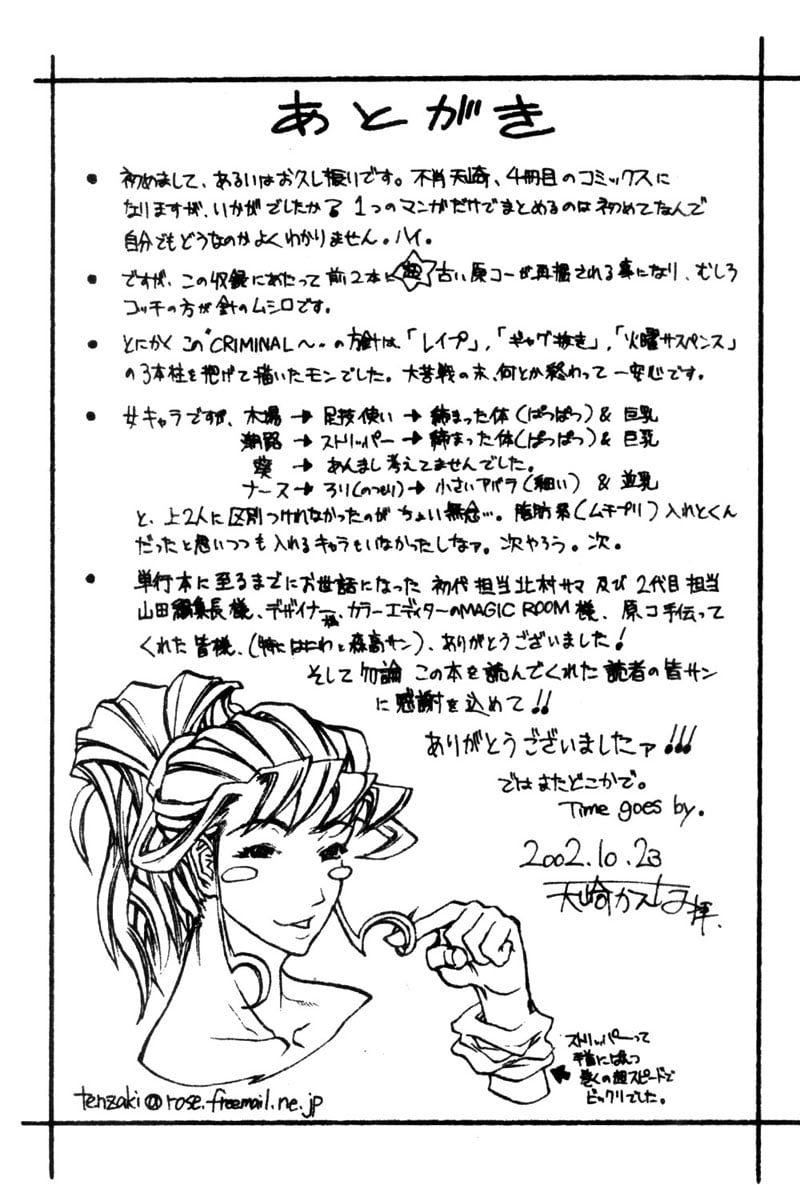 あとがき
• 初めまして、あるいはお久し振りです。不肖天崎、4冊目のコミックスに
なりますが、いかがでしたか？ 1つのマンガだけでまとめるのは初めてなんで
自分でもどうなのかよくわかりません。ハイ。
• ですが、この収録にあたって前2本に超古い原コーが再掲される事になり、むしろ
コッチの方が針のムシロです。
• とにかくこの"CRIMINAL〜"の方針は、「レイプ」,「ギャグ抜き」,「火曜サスペンス」
の3本柱を掲げて描いたモンでした。大苦戦の末、何とか終わって一安心です。
• 女キャラですが、木場 → 足技使い → 締まった体(ぱっぱつ) & 巨乳
→ ストリッパー → 締まった体(ぱっぱつ) & 巨乳
葵 → あんまし考えてませんでした。
ナース → ろり(のつもり) → 小さいアバラ(細い) & 並乳
と、上2人に区別つけれなかったのがちょい無念…。脂肪系(ムチプリ)入れとくん
だったと思いつつも入れるキャラもいなかったしなァ。次やろう。次。
• 単行本に至るまでにお世話になった 初代担当北村サマ 及び 2代目担当
山田編集長様、デザイナー様、カラーエディターのMAGIC ROOM様、原コ手伝って
くれた皆様、(特にはにわと森高サン)、ありがとうございました!
そして勿論 この本を読んでくれた読者の皆サン
に感謝を込めて!!
ありがとうございましたァ!!!
ではまたどこかで。
Time goes by.
2002.10.23
天崎かんな拝.
ストリッパーって
手首にぱんつ
巻くの超スピードで
ビックリでした。
tenzaki@rose.freemail.ne.jp